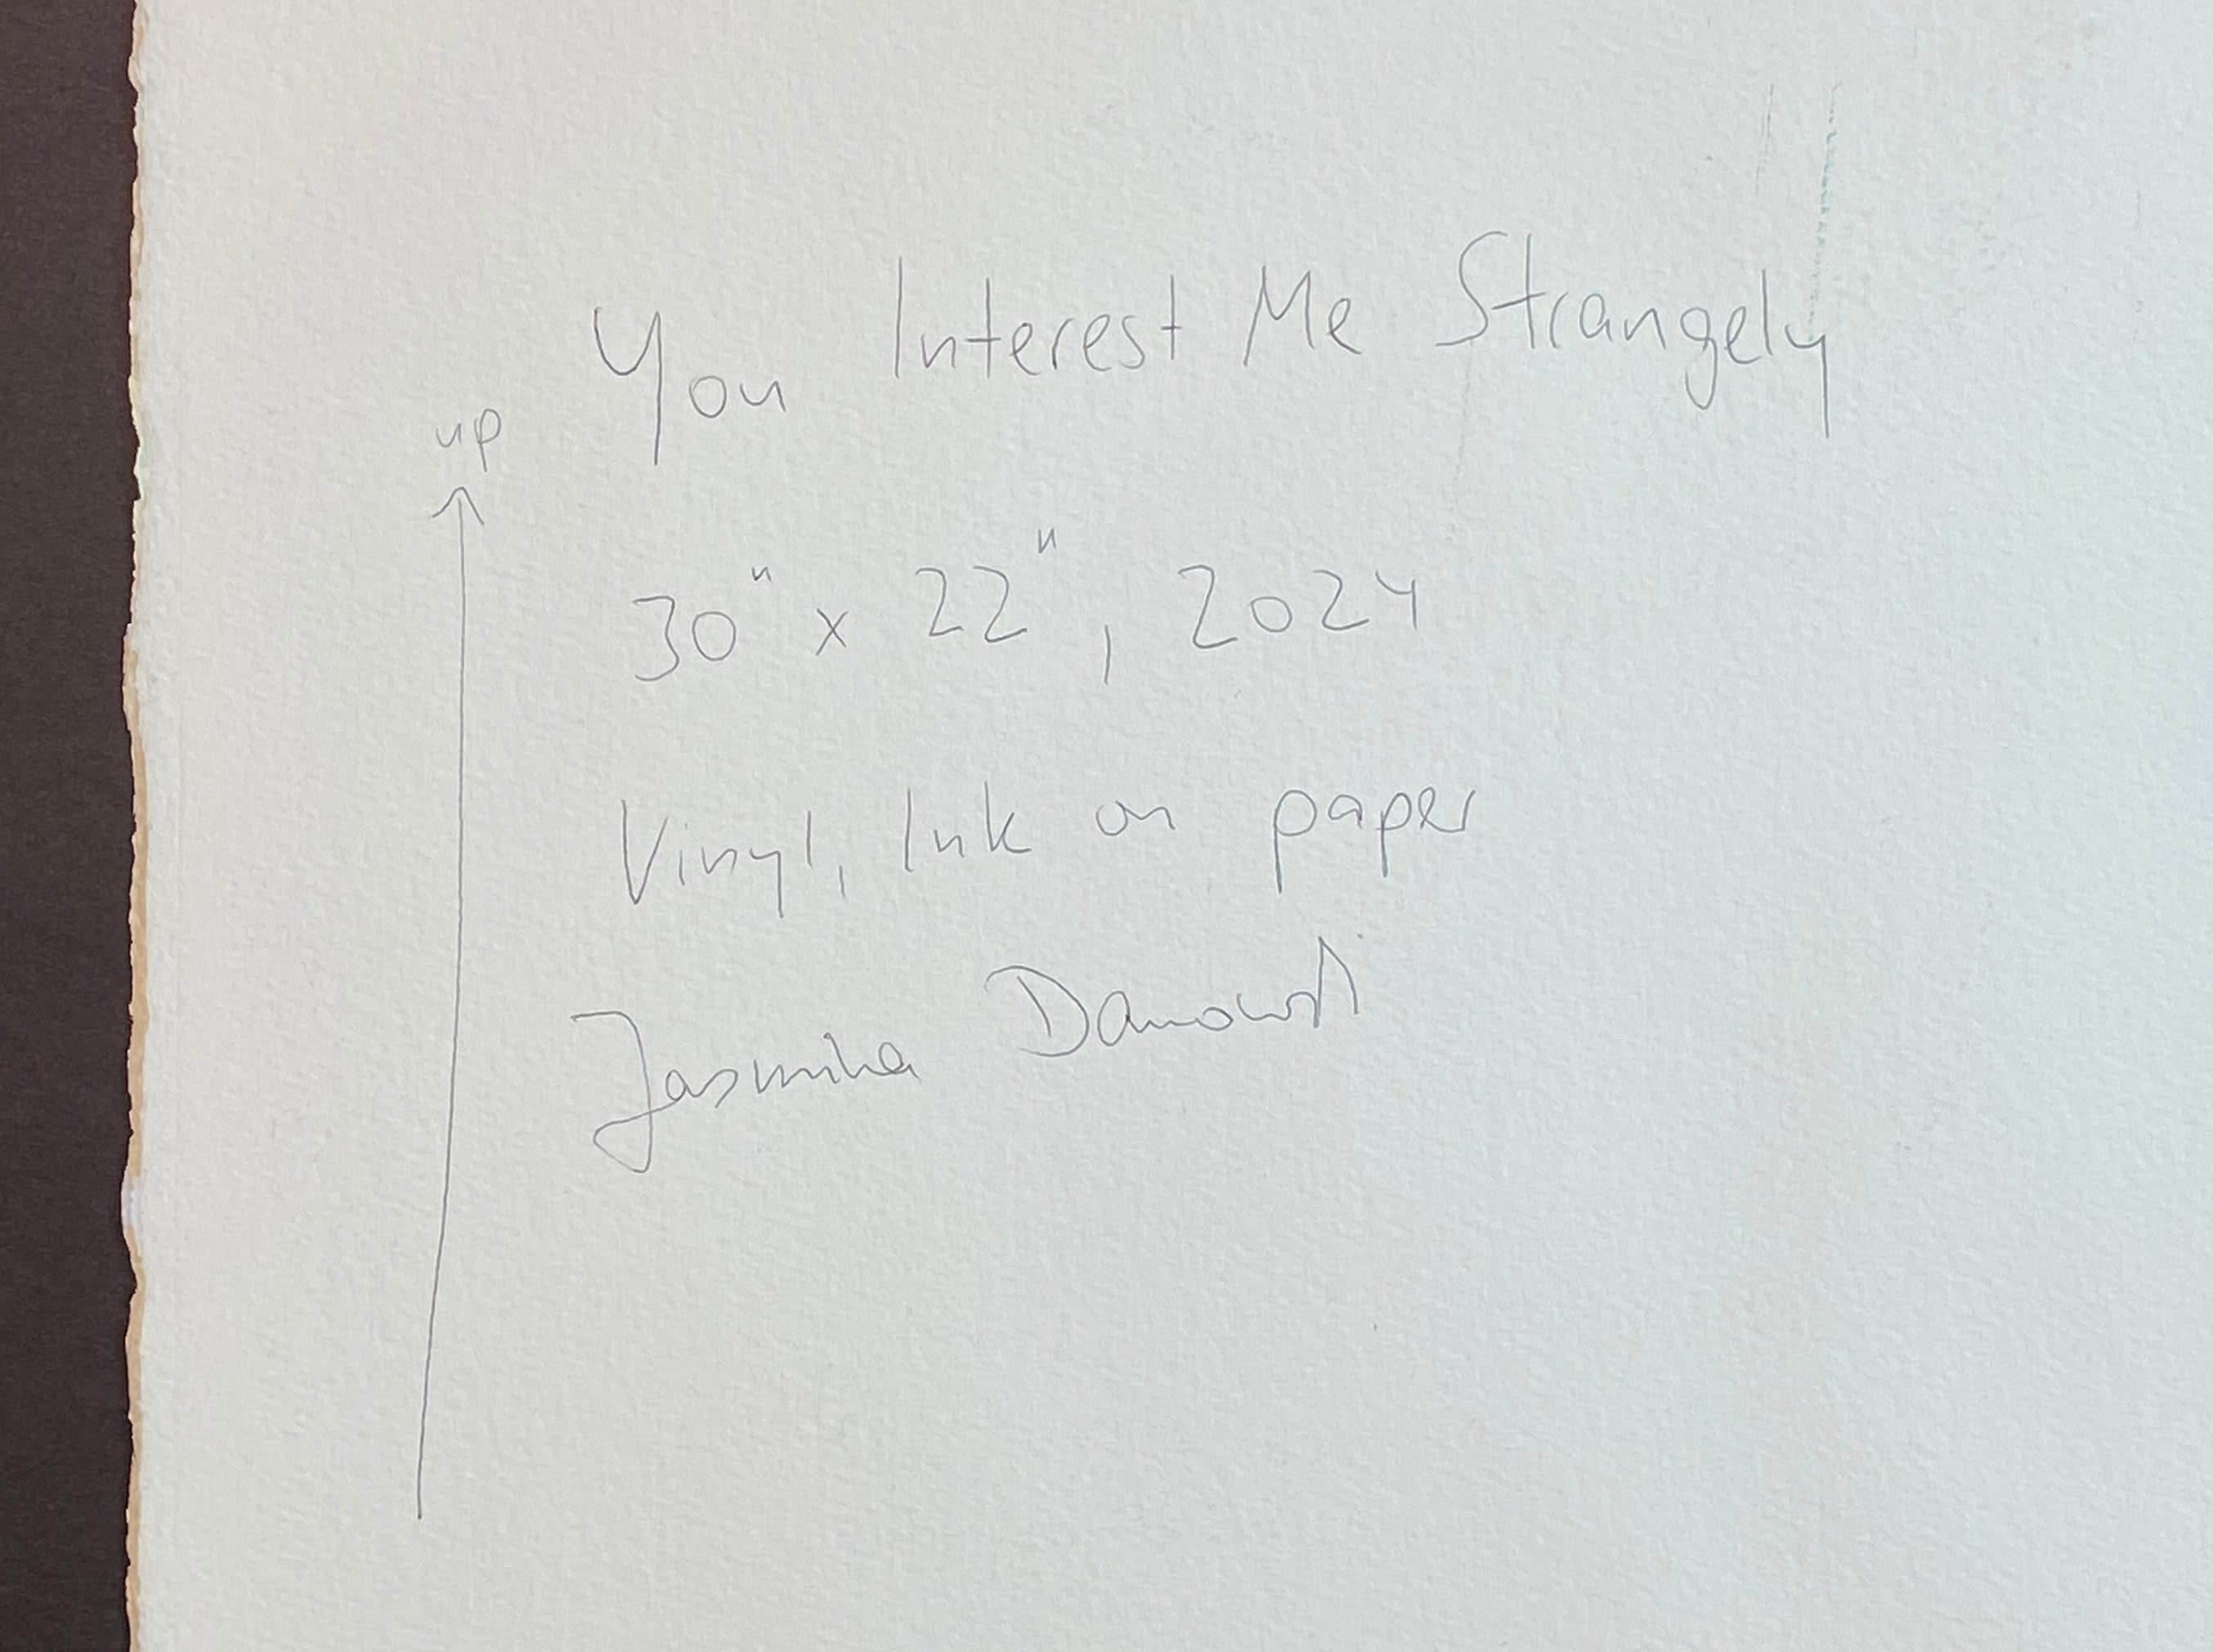 You Interest Me Strangely
up
30" x 22", 2024
Vinyl, Ink on paper
Jasmina Danowski